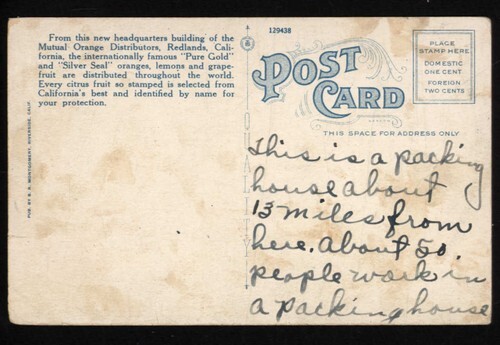 From this new headquarters building of the
Mutual Orange Distributors, Redlands, Cali-
fornia, the internationally famous "Pure Gold"
and "Silver Seal" oranges, lemons and grape-
fruit are distributed throughout the world.
Every citrus fruit so stamped is selected from
California's best and identified by name for
your protection.
PUB. BY R. D. MONTGOMERY, RIVERSIDE, CALIF.
129438
POST
CARD
PLACE
STAMP HERE
DOMESTIC
ONE CENT
FOREIGN
TWO CENTS
THIS SPACE FOR ADDRESS ONLY
This is a packing
house about
13 miles from
here. About 50
people work in
a packing house